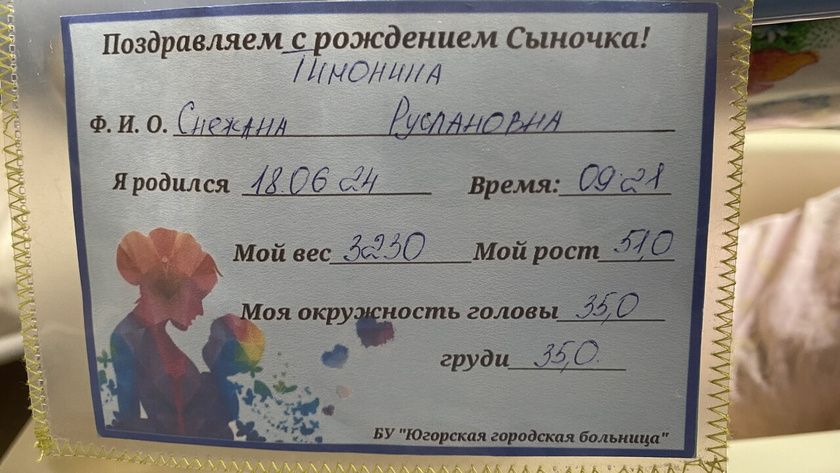 Поздравляем с рождением Сыночка!
Тимонина
Ф. И. О. Снежана Руслановна
Я родился 18.06 24 Время: 09:21
Мой вес 3230 Мой рост 51,0
Моя окружность головы 35,0
груди 35,0.
БУ "Югорская городская больница"